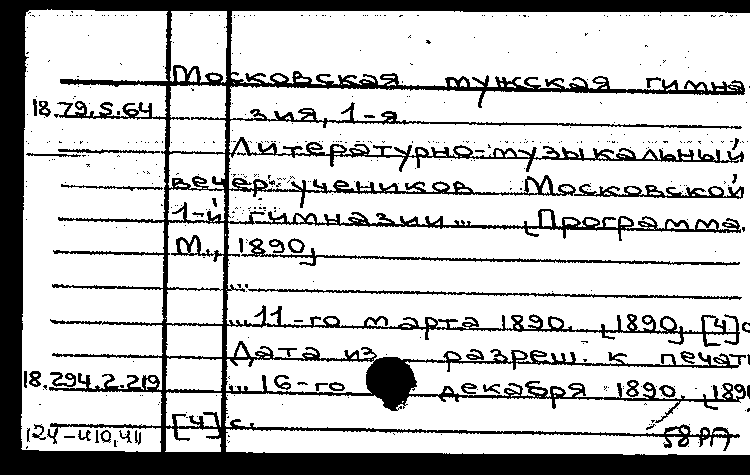 Московская мужская гимна
18.79.5.64 зия, 1-я.
Литературно-музыкальный
вечер учеников Московской
1-й гимназии... [Программа.
М., 1890]
...
...11-го марта 1890. [1890]. [4]с
Дата из разреш. к печат
18.294.2.219 ...16-го декабря 1890. [189
[4] с.